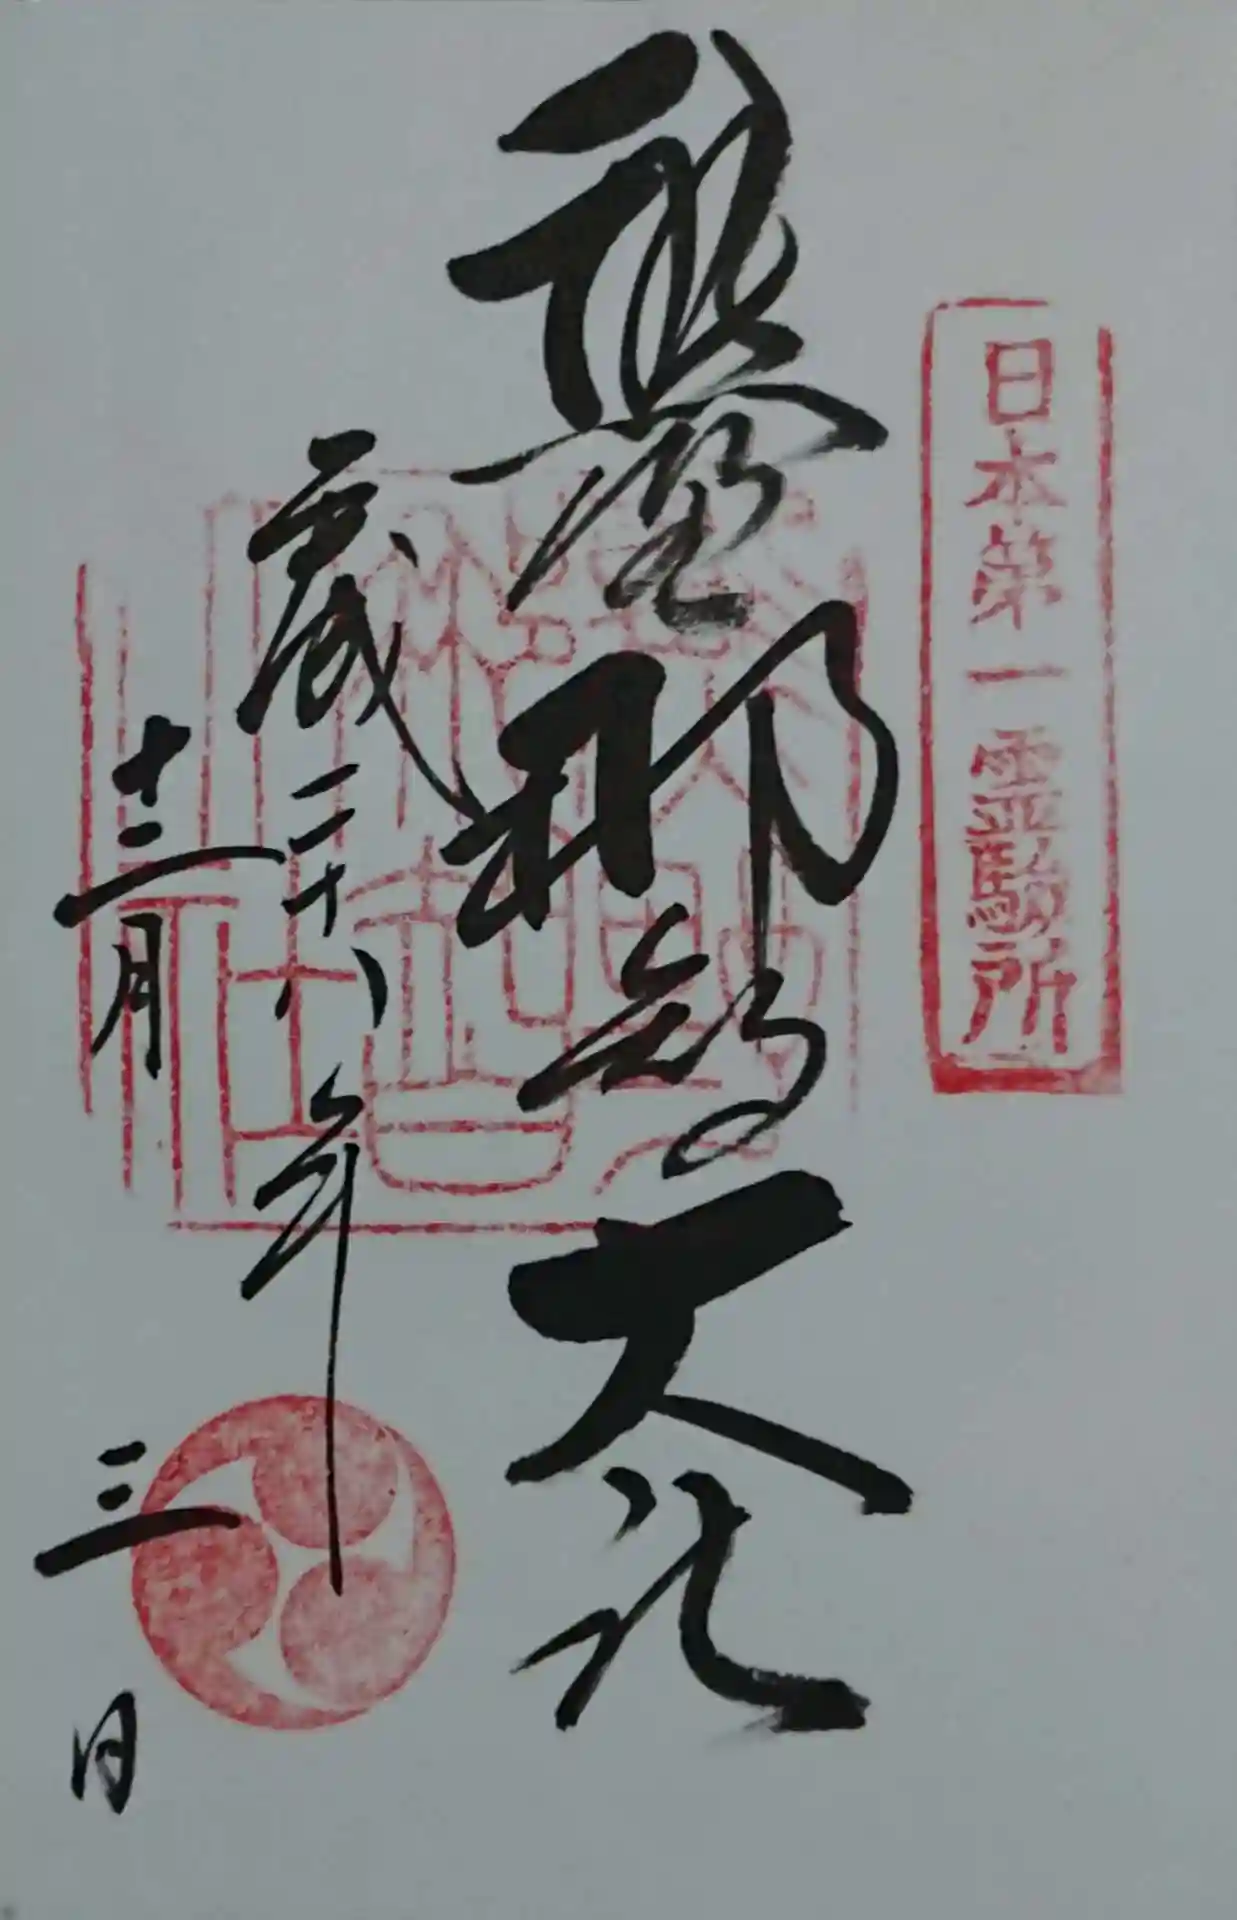 日本第一霊験所
熊野那智大社
平成二十八年
十二月三日